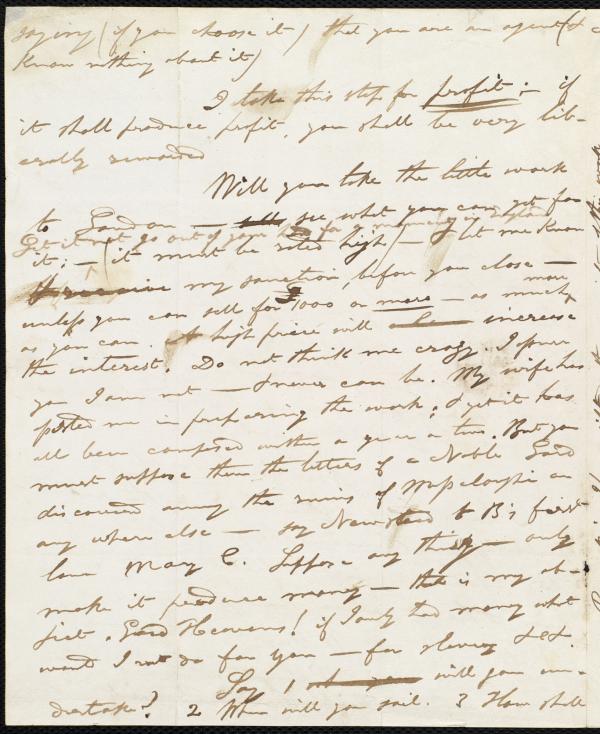 saying (if you choose it) that you are an agent (&
know nothing about it)
I take this step for profit; – if
it shall produce profit, you shall be very lib-
erally rewarded
Will you take the little work
to London – see what you can get for
Let it not go out of your for a moment in England
it; – (it must be rated high) – & let me know
my sanction, before you close –
unless you can sell for £1000 or more – as much more
as you can. A high price will increase
the interest. Do not think me crazy. I assure
you I am not – & never can be. My wife has
assisted me in preparing the work; & yet it has
all been composed within a year or two. But you
must suppose them the letters of a Noble Lord
discovered among the ruins of or
any where else – say Newstead to B's first
love Mary C. Suppose any thing – only
make it produce money – that is my ob-
ject. Good Heavens! if I only had money what
would I not do for you – for slavery &c &c.
Say 1 will you un-
dertake? 2 When will you sail. 3 How shall